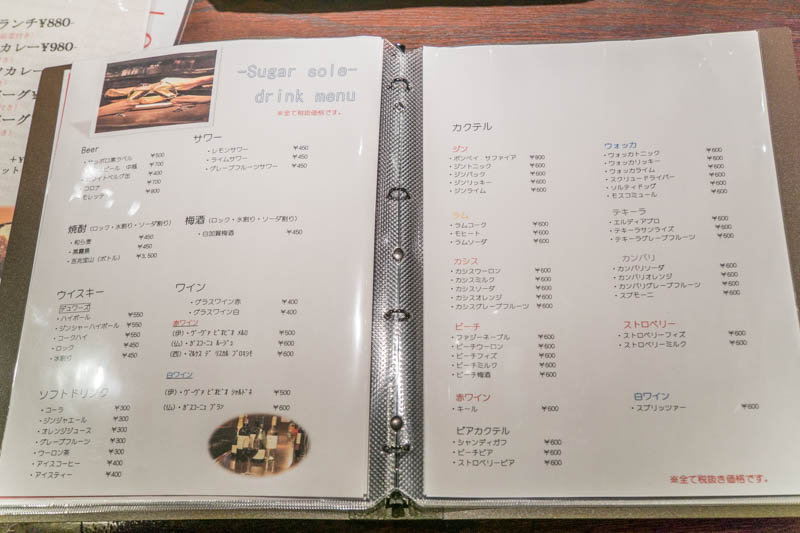 ランチ¥880
カレー¥980
-Sugar sole-
drink menu
※全て税抜価格です。
Beer
・サッポロ黒ラベル ¥500
ビール 中瓶 ¥700
ホワイトベルグ缶 ¥400
コロナ ¥700
モレッティ ¥800
サワー
・レモンサワー ¥450
・ライムサワー ¥450
・グレープフルーツサワー ¥450
焼酎 (ロック・水割り・ソーダ割り)
・和ら麦 ¥450
・黒霧島 ¥450
・吉兆宝山 (ボトル) ¥3,500
梅酒 (ロック・水割り・ソーダ割り)
・白加賀梅酒 ¥450
ウイスキー
デュワーズ
・ハイボール ¥550
・ジンジャーハイボール ¥550
・コークハイ ¥550
・ロック ¥450
・水割り ¥450
ワイン
・グラスワイン赤 ¥400
・グラスワイン白 ¥400
赤ワイン
(伊)・ヴーヴァ ピオピオ メルロ ¥500
(仏)・ガスコーニュ ルージュ ¥600
(西)・マルケス デ リスカル プロキシモ ¥600
白ワイン
(伊)・ヴーヴァ ピオピオ シャルドネ ¥500
(仏)・ガスコーニュ ブラン ¥600
ソフトドリンク
・コーラ ¥300
・ジンジャエール ¥300
・オレンジジュース ¥300
・グレープフルーツ ¥300
・ウーロン茶 ¥300
・アイスコーヒー ¥400
・アイスティー ¥400
カクテル
ジン
・ボンベイ サファイア ¥800
・ジントニック ¥600
・ジンバック ¥600
・ジンリッキー ¥600
・ジンライム ¥600
ラム
・ラムコーク ¥600
・モヒート ¥600
・ラムソーダ ¥600
カシス
・カシスウーロン ¥600
・カシスミルク ¥600
・カシスソーダ ¥600
・カシスオレンジ ¥600
・カシスグレープフルーツ ¥600
ピーチ
・ファジーネーブル ¥600
・ピーチウーロン ¥600
・ピーチフィズ ¥600
・ピーチミルク ¥600
・ピーチ梅酒 ¥600
赤ワイン
・キール ¥600
ビアカクテル
・シャンディガフ ¥600
・ピーチビア ¥600
・ストロベリービア ¥600
ウォッカ
・ウォッカトニック ¥600
・ウォッカリッキー ¥600
・ウォッカライム ¥600
・スクリュードライバー ¥600
・ソルティドッグ ¥600
・モスコミュール ¥600
テキーラ
・エルディアブロ ¥600
・テキーラサンライズ ¥600
・テキーラグレープフルーツ ¥600
カンパリ
・カンパリソーダ ¥600
・カンパリオレンジ ¥600
・カンパリグレープフルーツ ¥600
・スプモーニ ¥600
ストロベリー
・ストロベリーフィズ ¥600
・ストロベリーミルク ¥600
白ワイン
・スプリッツァー ¥600
※全て税抜き価格です。